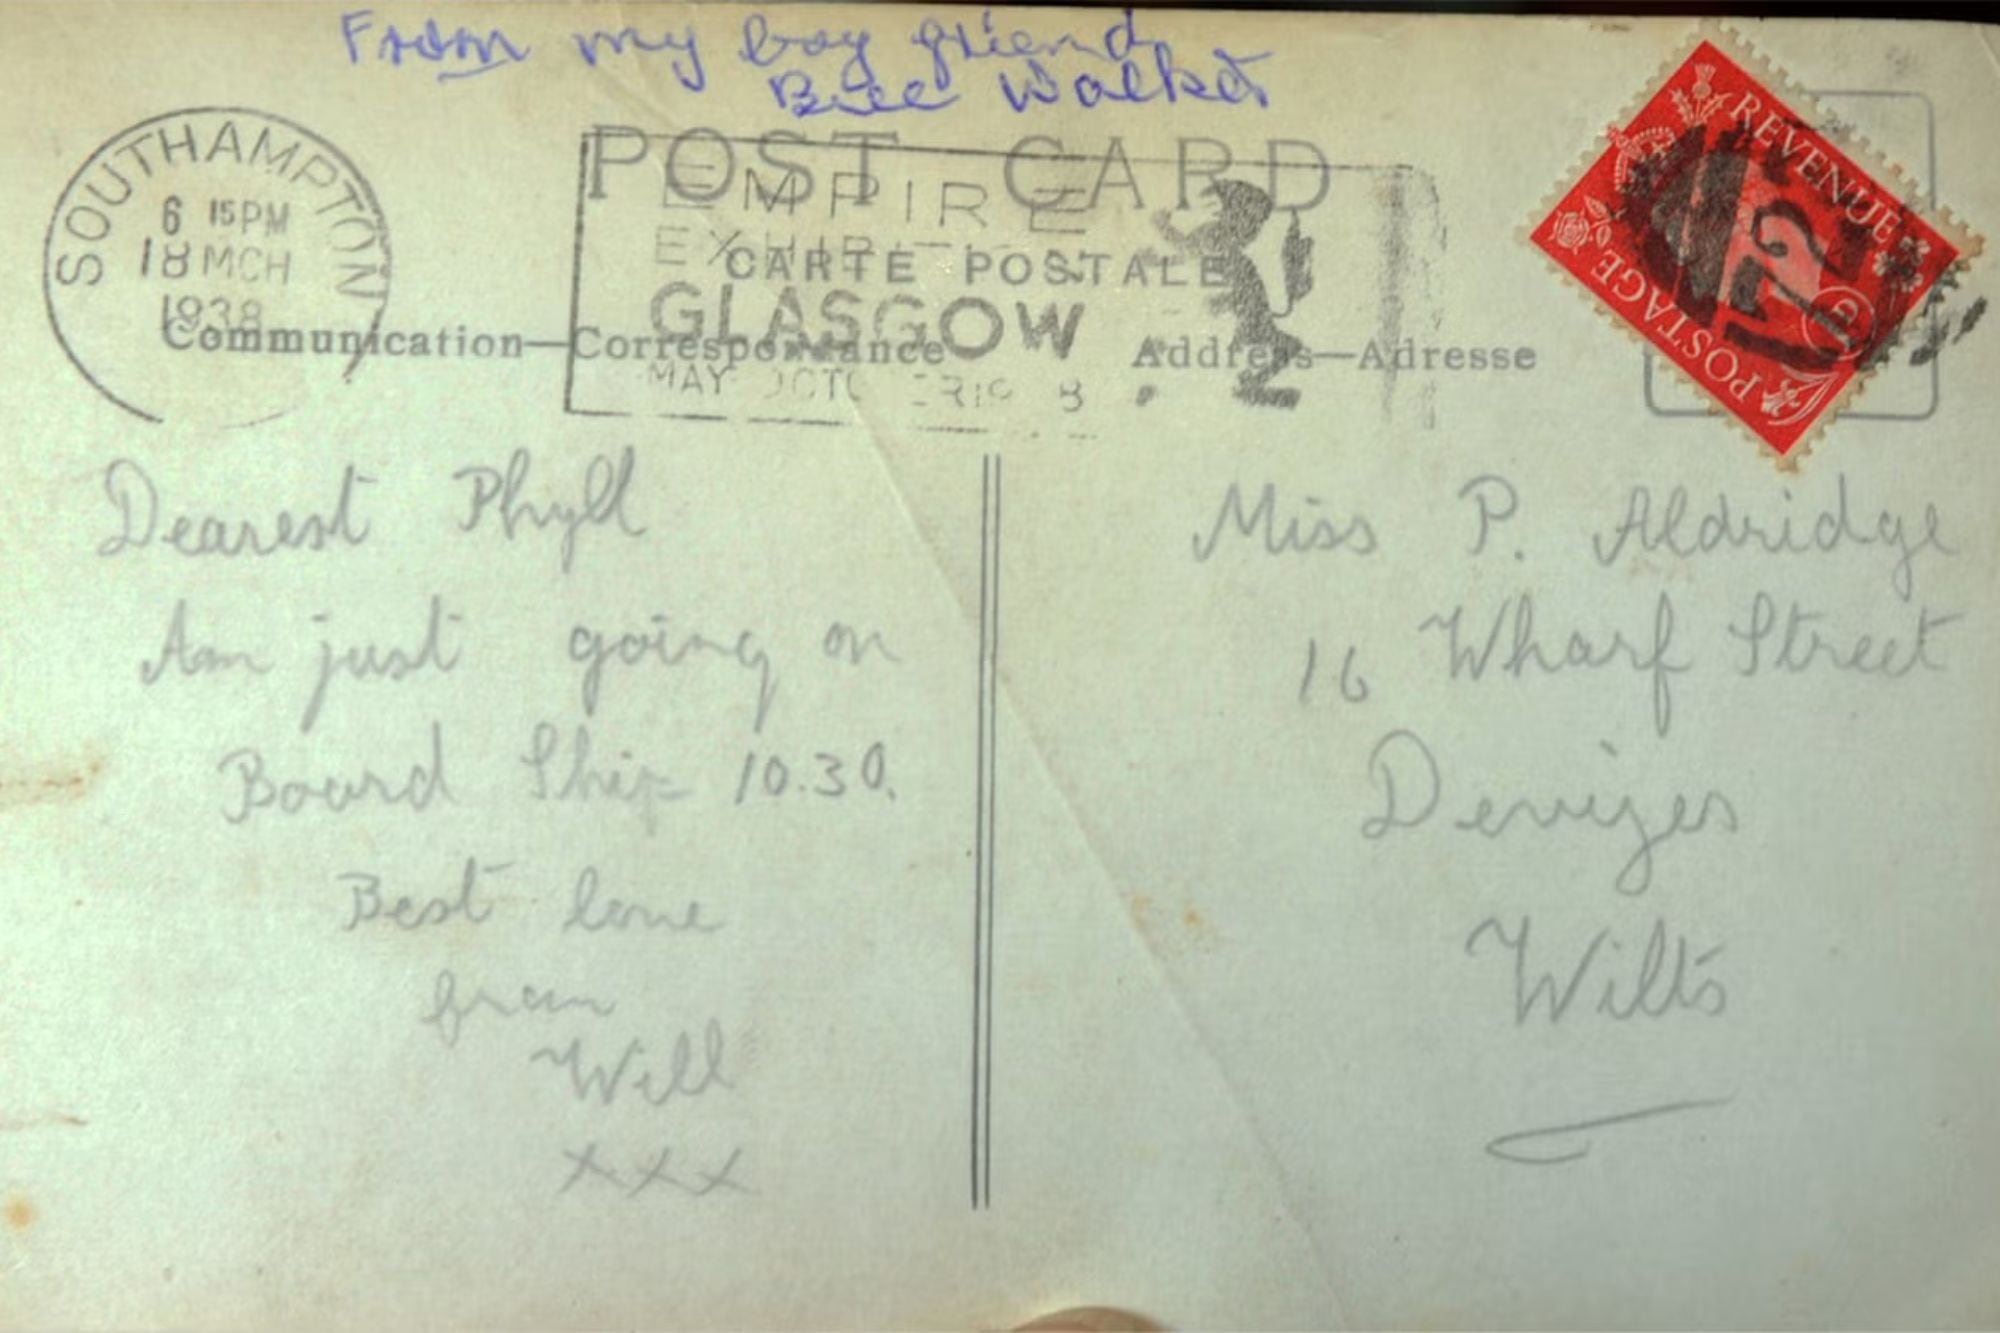 From my boy friend
Bill Walker
POST CARD
SOUTHAMPTON
6 15 PM
18 MCH
1938
EMPIRE
EXHIBITION
GLASGOW
MAY OCTOBER 1938
CARTE POSTALE
Communication—Correspondance
Address—Adresse
REVENUE
POSTAGE
172
Dearest Phyll
Am just going on
Board Ship 10.30.
Best love
from
Will
xxx
Miss P. Aldridge
16 Wharf Street
Devizes
Wilts